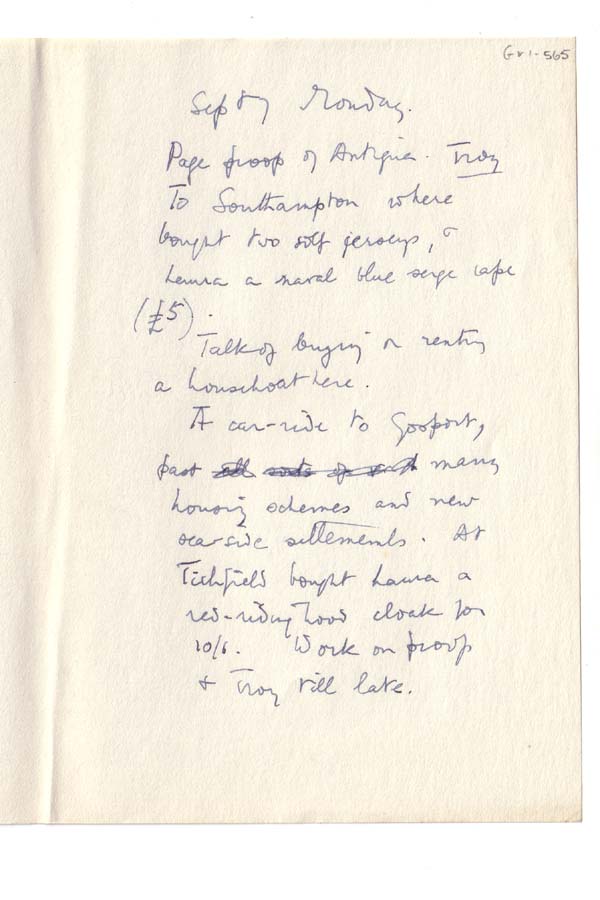 Gr1-565
Sep 7 Monday.
Page proof of Antigua. Troy
To Southampton where
bought two soft jerseys, &
Laura a naval blue serge cape
(£5).
Talk of buying or renting
a houseboat here.
A car-ride to Gosport,
past all sorts of small many
housing schemes and new
sea-side settlements. At
Titchfield bought Laura a
red-riding hood cloak for
10/6. Work on proof
& Troy till late.